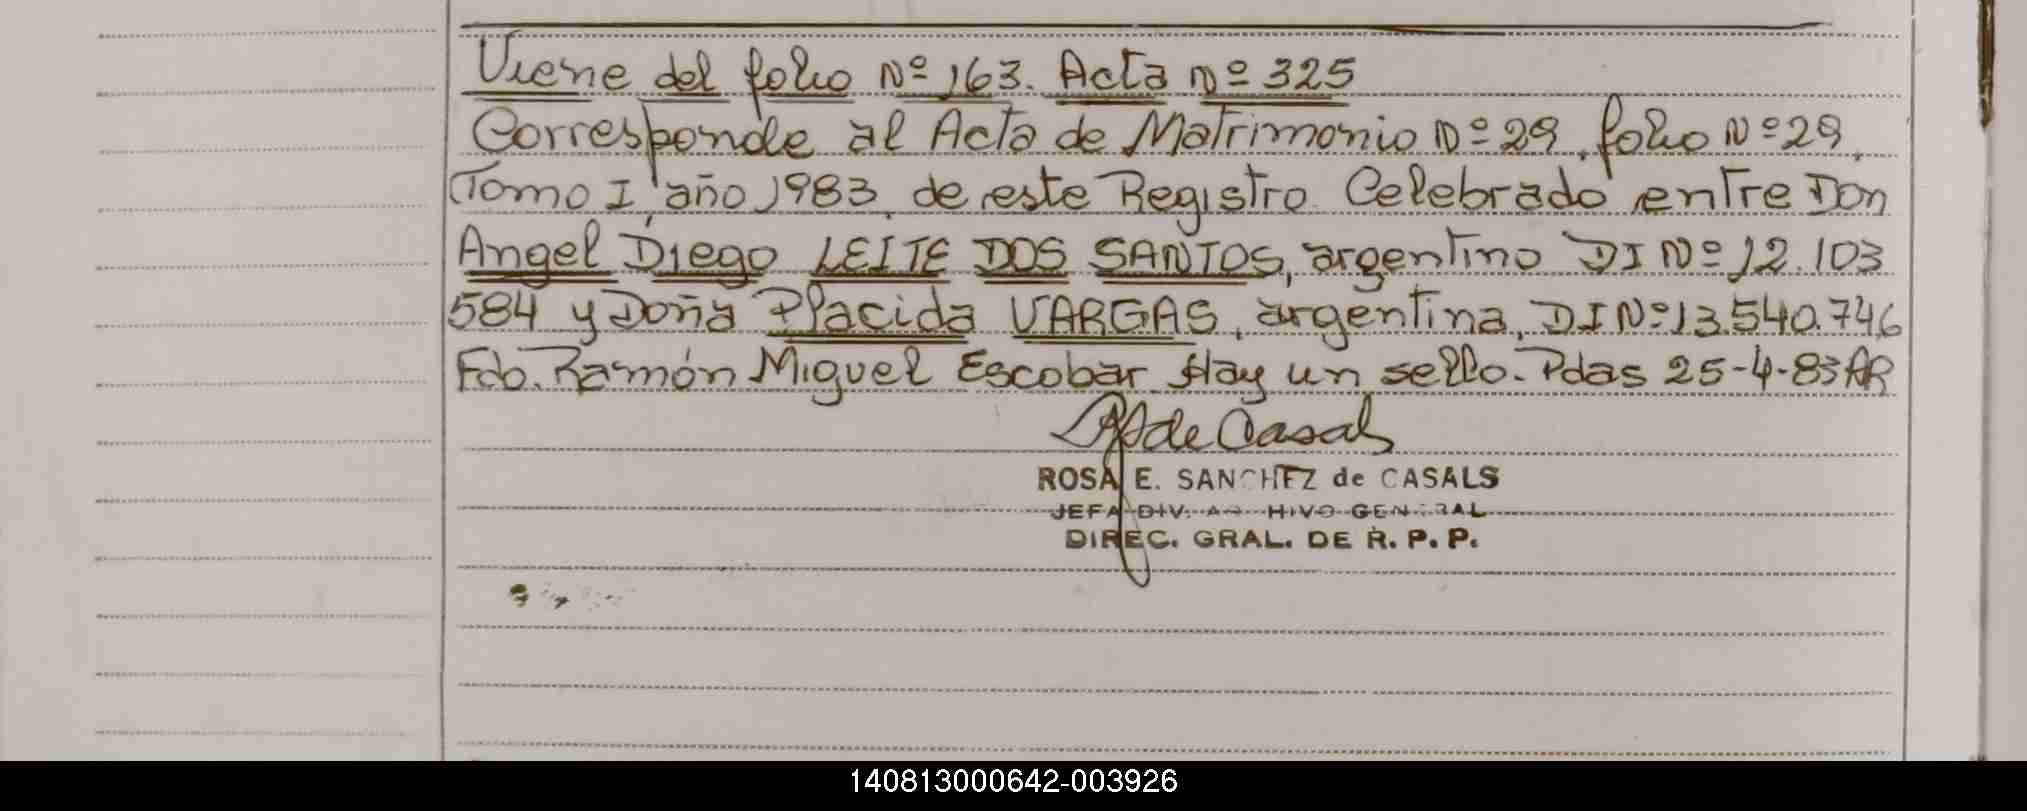 Viene del folio Nº 163. Acta Nº 325
Corresponde al Acta de Matrimonio Nº 29, folio Nº 29,
Tomo I, año 1983, de este Registro Celebrado entre Don
Angel Diego LEITE DOS SANTOS, argentino DI Nº 12.103
584 y Doña Placida VARGAS, argentina, DI Nº 13.540.746
Fdo. Ramón Miguel Escobar Hay un sello. Pdas 25-4-83 AR
de Casals
ROSA E. SANCHEZ de CASALS
JEFA DIV. ARCHIVO GENERAL
DIREC. GRAL. DE R. P. P.
140813000642-003926